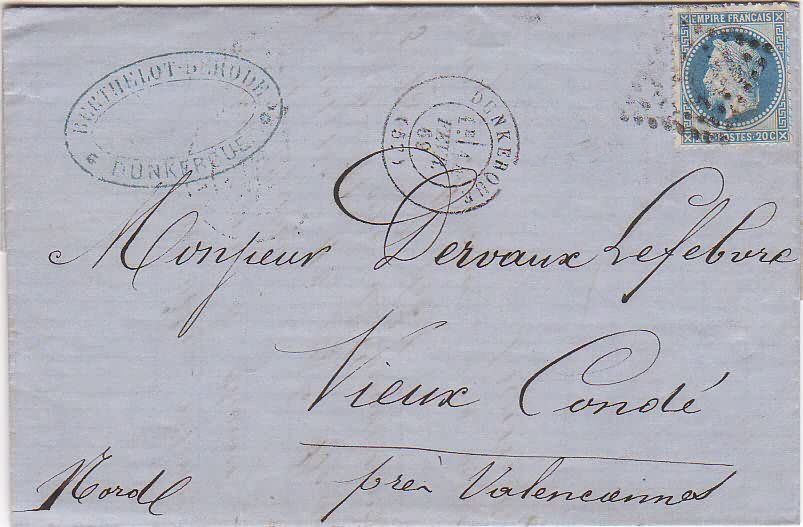 BERTHELOT-DERODE
DUNKERQUE
DUNKERQUE
69
(57)
EMPIRE FRANÇAIS
20 C POSTES 20 C
Monsieur Dervaux Lefebvre
Vieux Condé
près Valenciennes
Nord